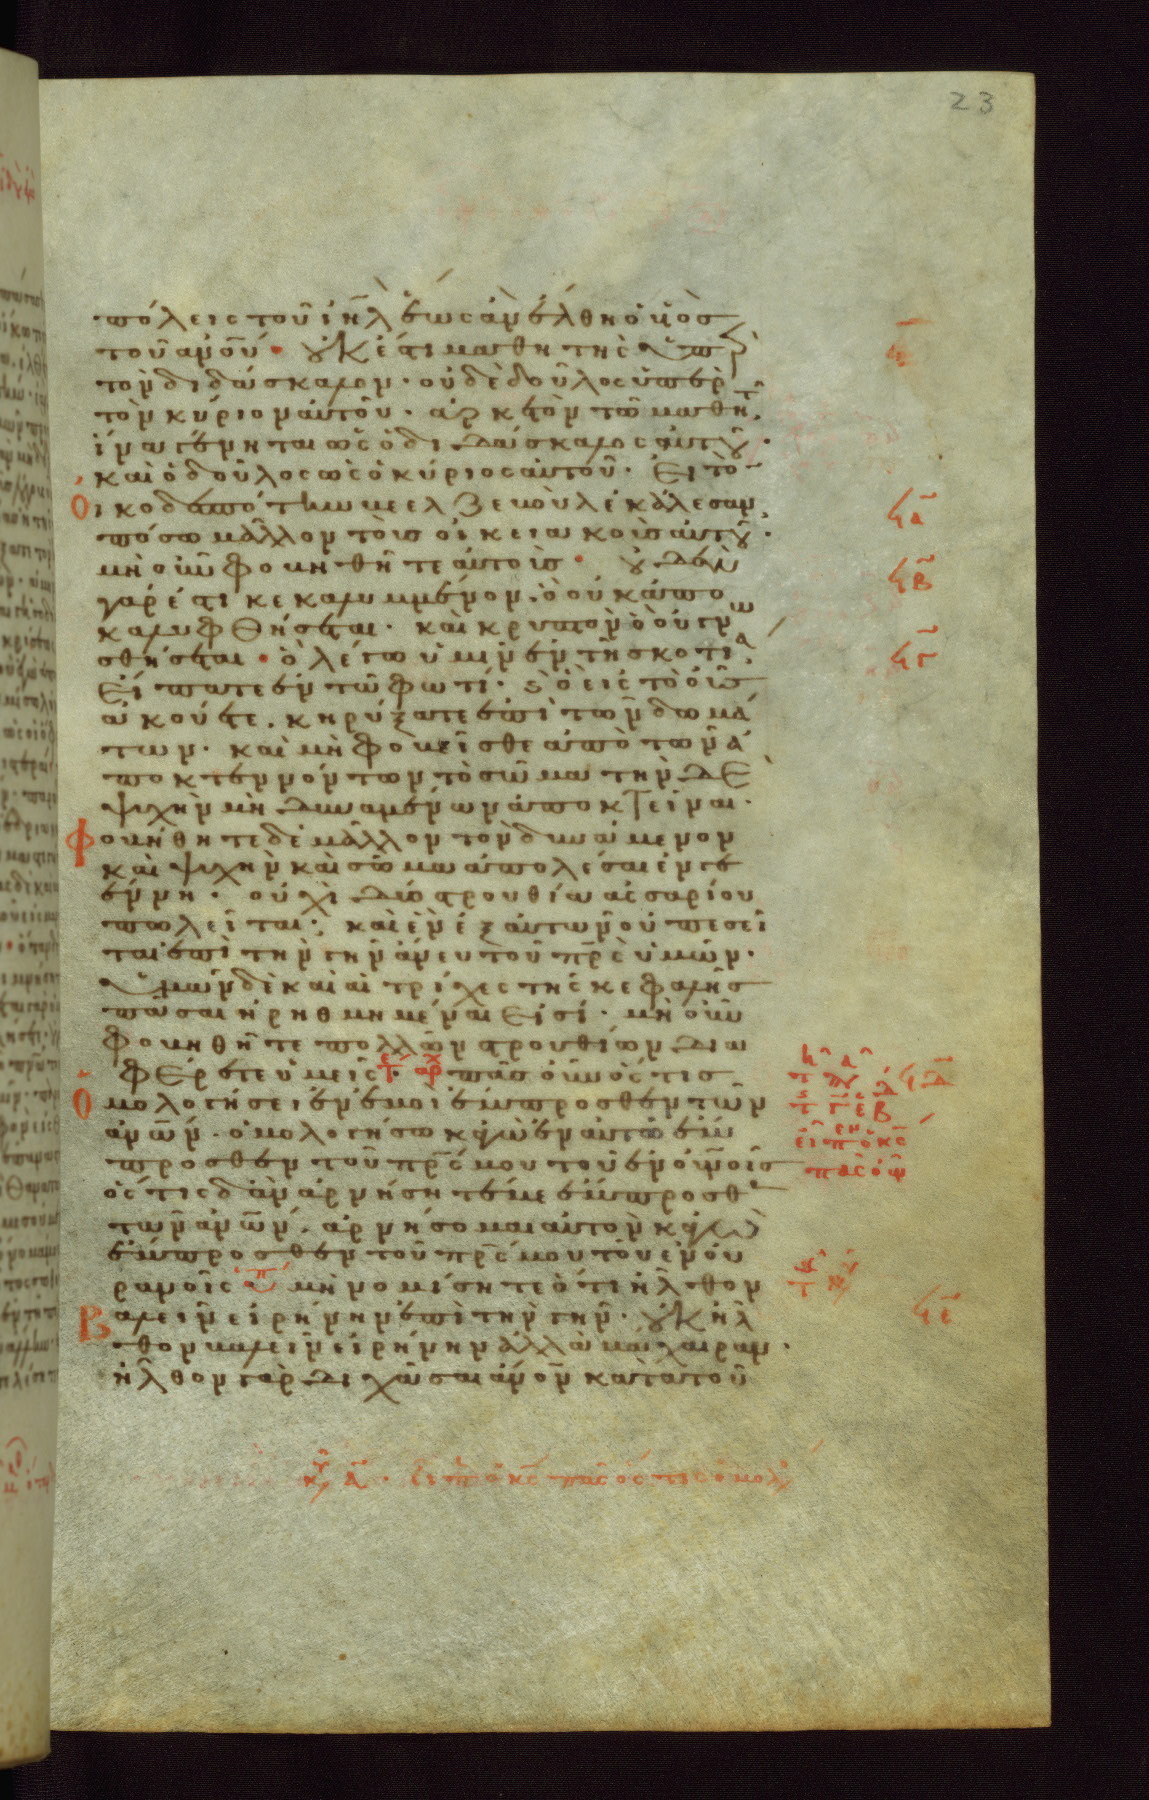 23
πόλεις τοῦ ἰη̅λ ἕως ἂν ἔλθη ὁ υ̅ὸς
τοῦ ἀν̅ου̅· οὐκ ἔστι μαθητὴς ὑπὲρ
τὸν διδάσκαλον· οὐδὲ δοῦλος ὑπὲρ
τὸν κύριον αὐτοῦ· ἀρκετὸν τῶ μαθητῆ
ἵνα γένηται ὡς ὁ διδάσκαλος αὐτοῦ·
καὶ ὁ δοῦλος ὡς ὁ κύριος αὐτοῦ· Εἰ τὸν
οἰκοδεσπότην βεελζεβοὺλ ἐκάλεσαν,
πόσω μᾶλλον τοὺς οἰκειακοὺς αὐτοῦ·
μὴ οὖν φοβηθῆτε αὐτούς· οὐδὲν
γάρ ἐστι κεκαλυμμένον, ὃ οὐκ ἀπο
καλυφθήσεται· καὶ κρυπτὸν ὃ οὐ γνω
σθήσεται· ὃ λέγω ὑμῖν ἐν τῆ σκοτία
εἴπατε ἐν τῶ φωτί· καὶ ὃ εἰς τὸ οὖς
ἀκούετε, κηρύξατε ἐπὶ τῶν δωμά
των· καὶ μὴ φοβεῖσθε ἀπὸ τῶν ἀ
ποκτεννόντων τὸ σῶμα τὴν δὲ
ψυχὴν μὴ δυναμένων ἀποκτεῖναι·
φοβήθητε δὲ μᾶλλον τὸν δυνάμενον
καὶ ψυχὴν καὶ σῶμα ἀπολέσαι ἐν γε
έννη· οὐχὶ δύο στρουθία ἀσσαρίου
πωλεῖται· καὶ ἓν ἐξ αὐτῶν οὐ πεσεῖ
ται ἐπὶ τὴν γῆν ἄνευ τοῦ πρ̅ς ὑμῶν·
ὑμῶν δὲ καὶ αἱ τρίχες τῆς κεφαλῆς
πᾶσαι ἠριθμημέναι εἰσί· μὴ οὖν
φοβηθῆτε πολλῶν στρουθίων δια
φέρετε ὑμεῖς· τ̅ε ἀρχ πᾶς οὖν ὅστις
ὁμολογήσει ἐν ἐμοὶ ἔμπροσθεν τῶν
ἀν̅ων· ὁμολογήσω κἀγὼ ἐν αὐτῶ ἔμ
προσθεν τοῦ πρ̅ς μου τοῦ ἐν οὐ̅νοις
ὅστις δ' ἂν ἀρνήσηταί με ἔμπροσθεν
τῶν ἀν̅ων, ἀρνήσομαι αὐτὸν κἀγὼ
ἔμπροσθεν τοῦ πρ̅ς μου τοῦ ἐν οὐ
ρανοῖς ὑπ μὴ νομίσητε ὅτι ἦλθον
βαλεῖν εἰρήνην ἐπὶ τὴν γῆν· οὐκ ἦλ
θον βαλεῖν εἰρήνην ἀλλὰ μάχαιραν·
ἦλθον γὰρ διχάσαι ἄν̅ον κατὰ τοῦ
ϟ̅
ϟα̅
ϟβ̅
ϟγ̅
ϟδ̅
ϟε̅
εἶπεν ὁ κ̅ς
πᾶς ὁ
κυ α̅· εἶπ ὁ κ̅ς πᾶς ὅστις ὁμολ